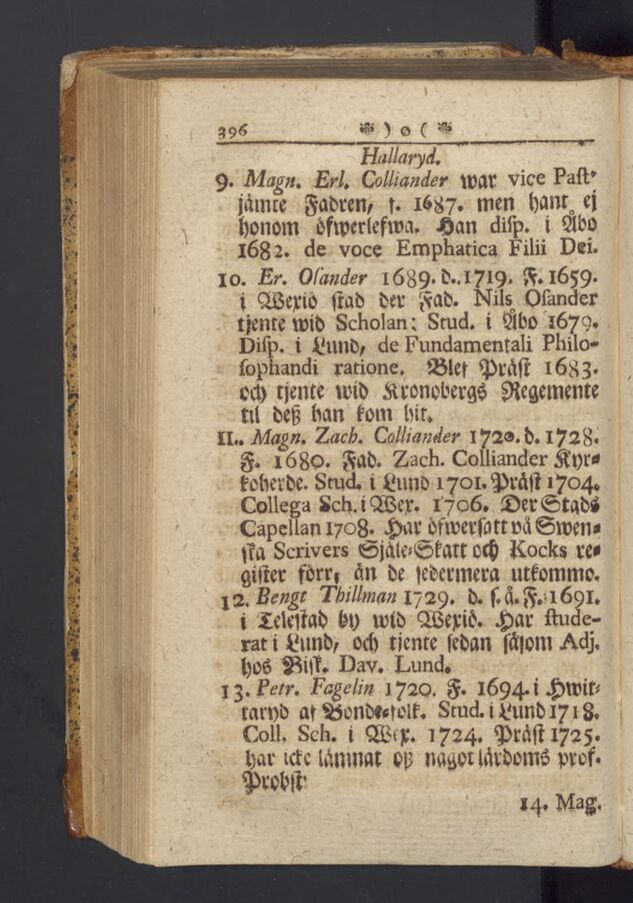 396 ❉ ) o ( ❉
Hallaryd.
9. Magn. Erl. Colliander war vice Past⸗
jämte Fadren, f. 1687. men hant ej
honom öfwerlefwa. Han disp. i Åbo
1682. de voce Emphatica Filii Dei.
10. Er. Osander 1689. d. 1719. F. 1659.
i Wexiö stad der Fad. Nils Osander
tjente wid Scholan: Stud. i Åbo 1679.
Disp. i Lund, de Fundamentali Philo-
sophandi ratione. Blef Präst 1683.
och tjente wid Kronobergs Regemente
til deß han kom hit.
11. Magn. Zach. Colliander 1720. d. 1728.
F. 1680. Fad. Zach. Colliander Kyr⸗
koherde. Stud. i Lund 1701. Präst 1704.
Collega Sch. i Wex. 1706. Der Stads
Capellan 1708. Har öfwersatt på Swen⸗
ska Scrivers Själe⸗Skatt och Kocks re⸗
gister förr, än de sedermera utkommo.
12. Bengt Thillman 1729. d. s. å. F. 1691.
i Telestad by wid Wexiö. Har stude⸗
rat i Lund, och tjente sedan såsom Adj.
hos Bisk. Dav. Lund.
13. Petr. Fagelin 1720. F. 1694. i Hwit⸗
taryd af Bonde⸗folk. Stud. i Lund 1718.
Coll. Sch. i Wex. 1724. Präst 1725.
har icke lämnat oß något lärdoms prof.
Probst
14. Mag.